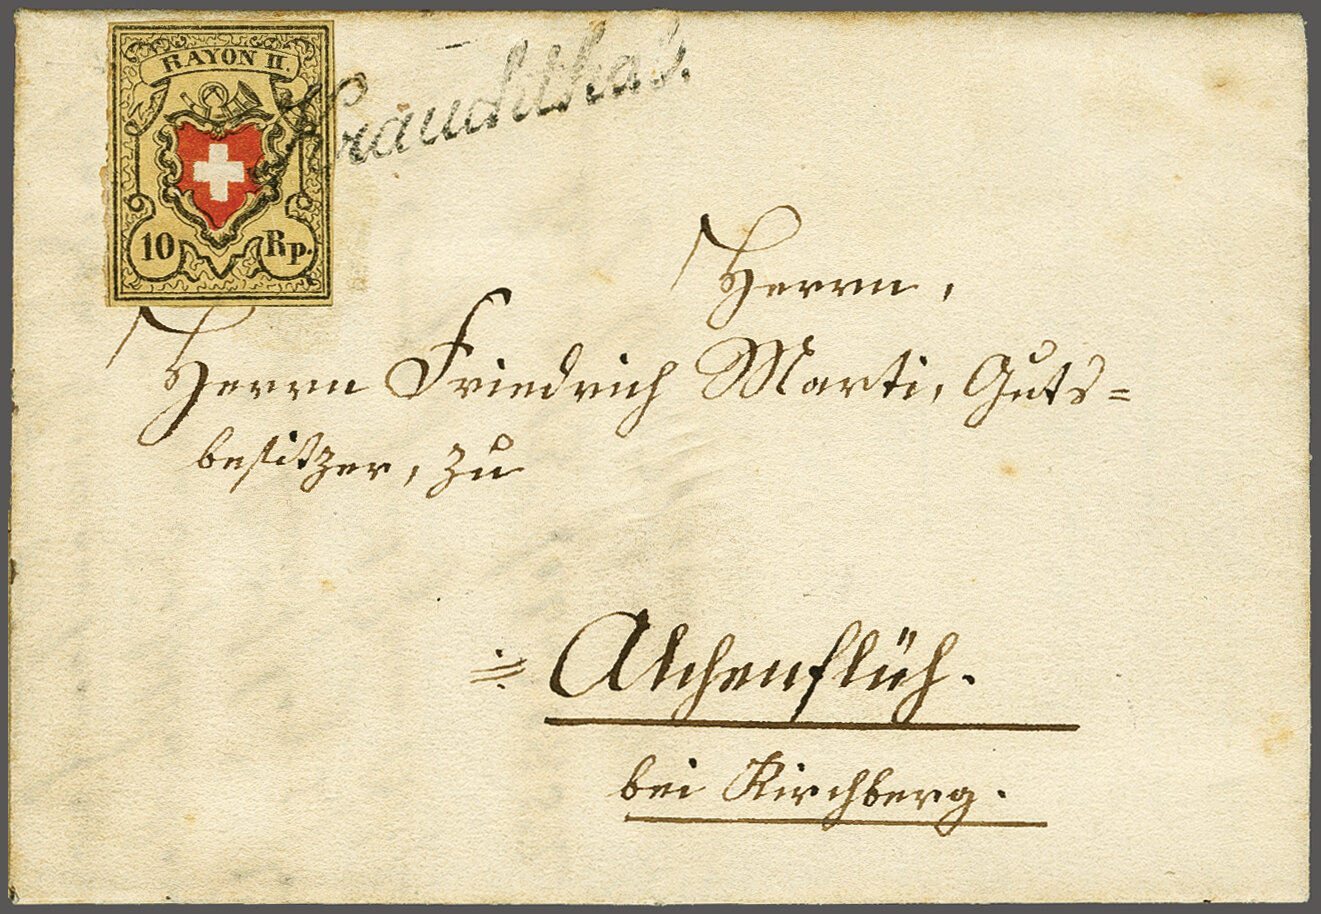 RAYON II.
Krauchthal.
10 Rp.
Herrn,
Herrn Friedrich Marti, Guts=
besitzer, zu
Alchenflüh.
bei Kirchberg.